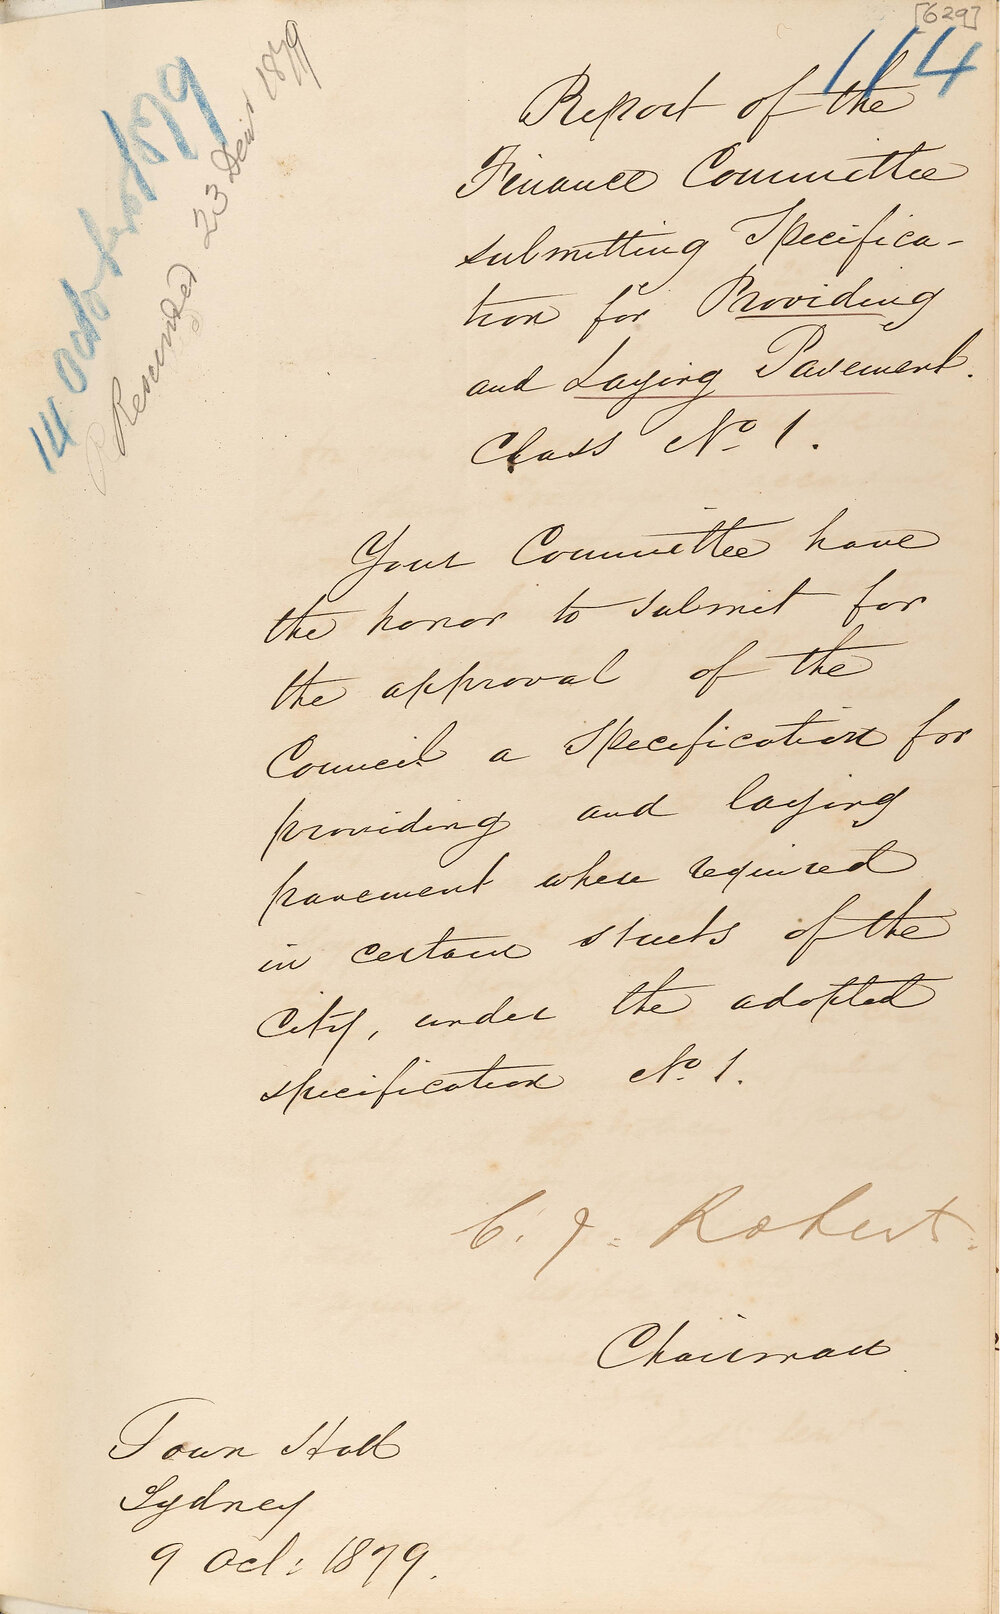 [629]
114
14 October 1879
Rescinded 23 Decr 1879
Report of the
Finance Committee
submitting Specifica-
tion for Providing
and Laying Pavement.
Class No. 1.
Your Committee have
the honor to submit for
the approval of the
Council a Specification for
providing and laying
pavement where required
in certain streets of the
City, under the adopted
specification No. 1.
C. J. Robert.
Chairman
Town Hall
Sydney
9 Oct: 1879.